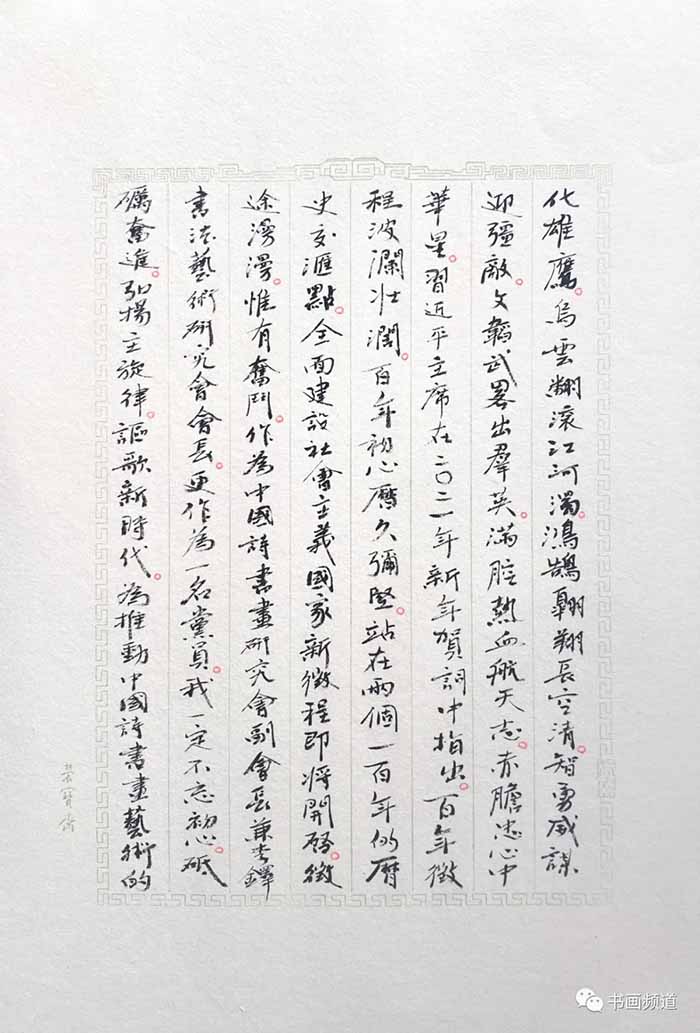 化雄鷹。烏雲翻滾江河濁。鴻鵠翱翔長空清。智勇威謀
迎强敵。文韜武略出羣英。滿腔熱血航天志。赤膽忠心中
華星。習近平主席在二〇二一年新年賀詞中指出。百年徵
程波瀾壯濶。百年初心歷久彌堅。站在兩個一百年的歷
史交滙點。全面建設社會主義國家新徵程即將開啓。徵
途漫漫。惟有奮鬥。作為中國詩書畫研究會副會長兼李鐸
書法藝術研究會會長。更作為一名黨員。我一定不忘初心。砥
礪奮進。弘揚主旋律。謳歌新時代。為推動中國詩書畫藝術的
榮寶齋
书画频道